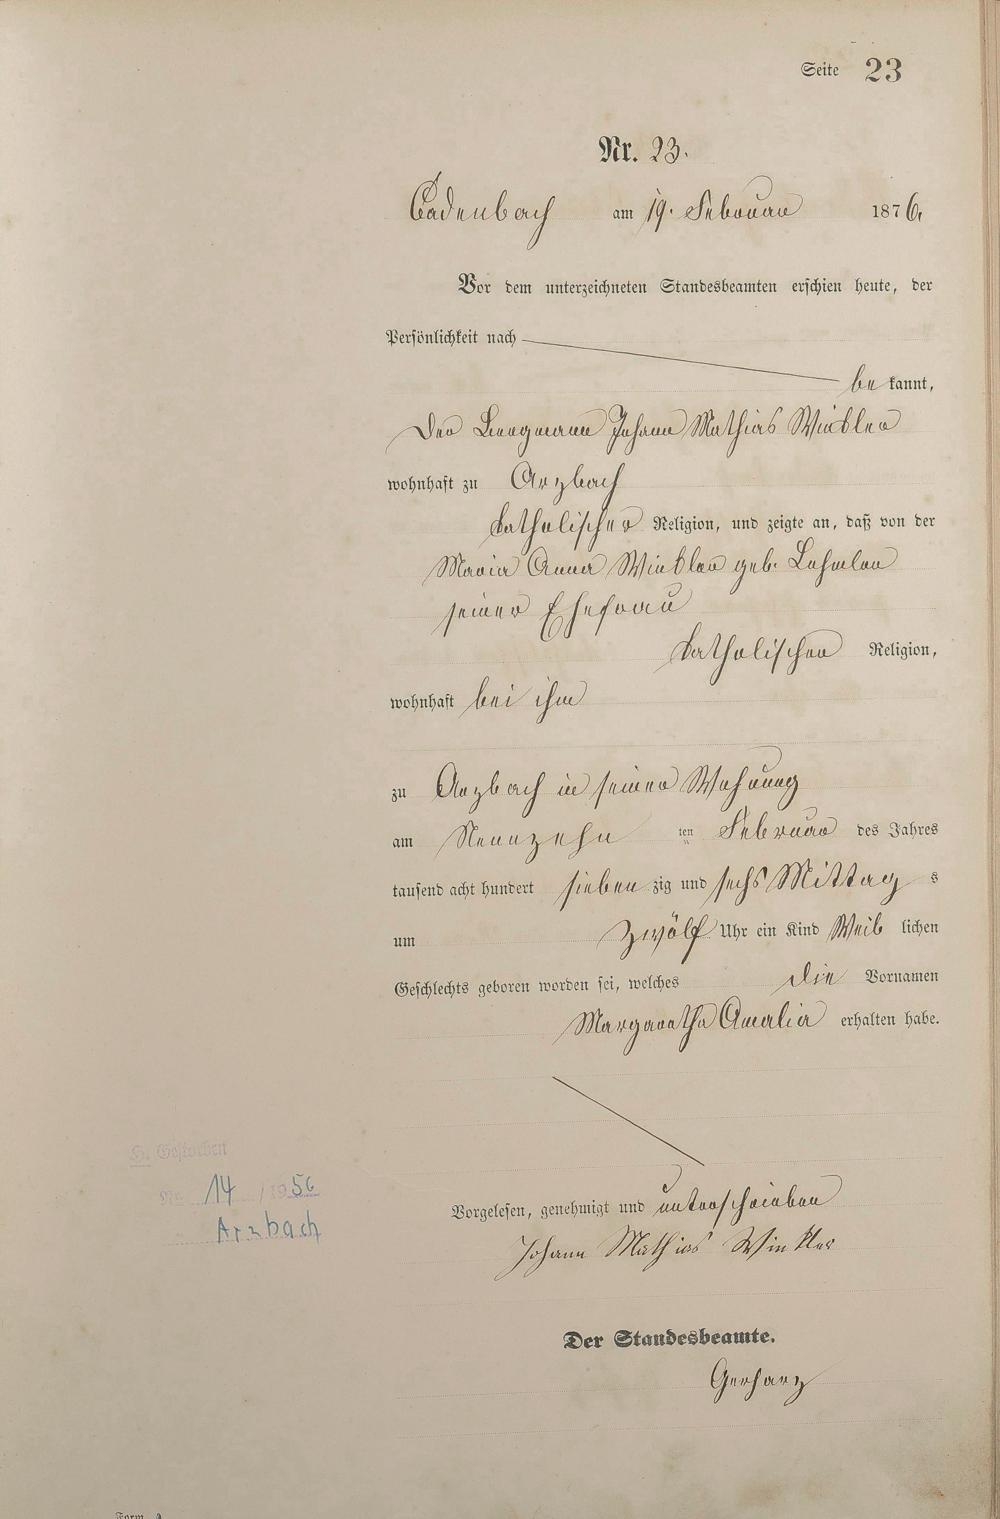 Seite 23
Nr. 23.
Cadenbach am 19. Februar 1876.
Vor dem unterzeichneten Standesbeamten erschien heute, der
Persönlichkeit nach
be kannt,
Der Bergmann Johann Mathias Winkler
wohnhaft zu Arzbach
katholischer Religion, und zeigte an, daß von der
Maria Anna Winkler geb. Lehmler
seiner Ehefrau
katholischer Religion,
wohnhaft bei ihm
zu Arzbach in seiner Wohnung
am Neunzehn ten Februar des Jahres
tausend acht hundert sieben zig und sechs Mittag s
um zwölf Uhr ein Kind Weib lichen
Geschlechts geboren worden sei, welches die Vornamen
Margaretha Amalia erhalten habe.
H. Gestorben
Nr. 14 / 1956
Arzbach
Vorgelesen, genehmigt und unterschrieben
Johann Mathias Winkler
Der Standesbeamte.
Gerharz
Form. A